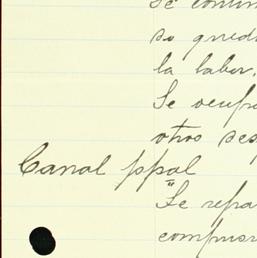 Se contin
se qued
la labor.
Se ocup
otros des
Canal ppal
"Se repa
compus